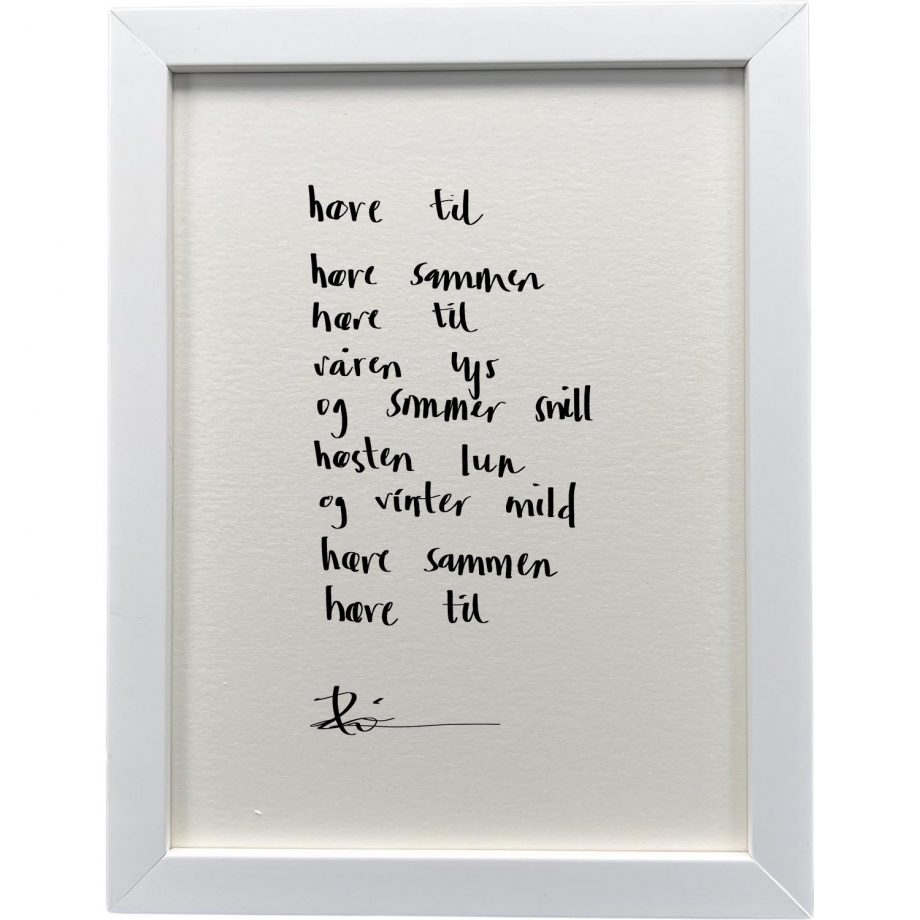 høre til
høre sammen
høre til
våren lys
og sommer snill
høsten lun
og vinter mild
høre sammen
høre til